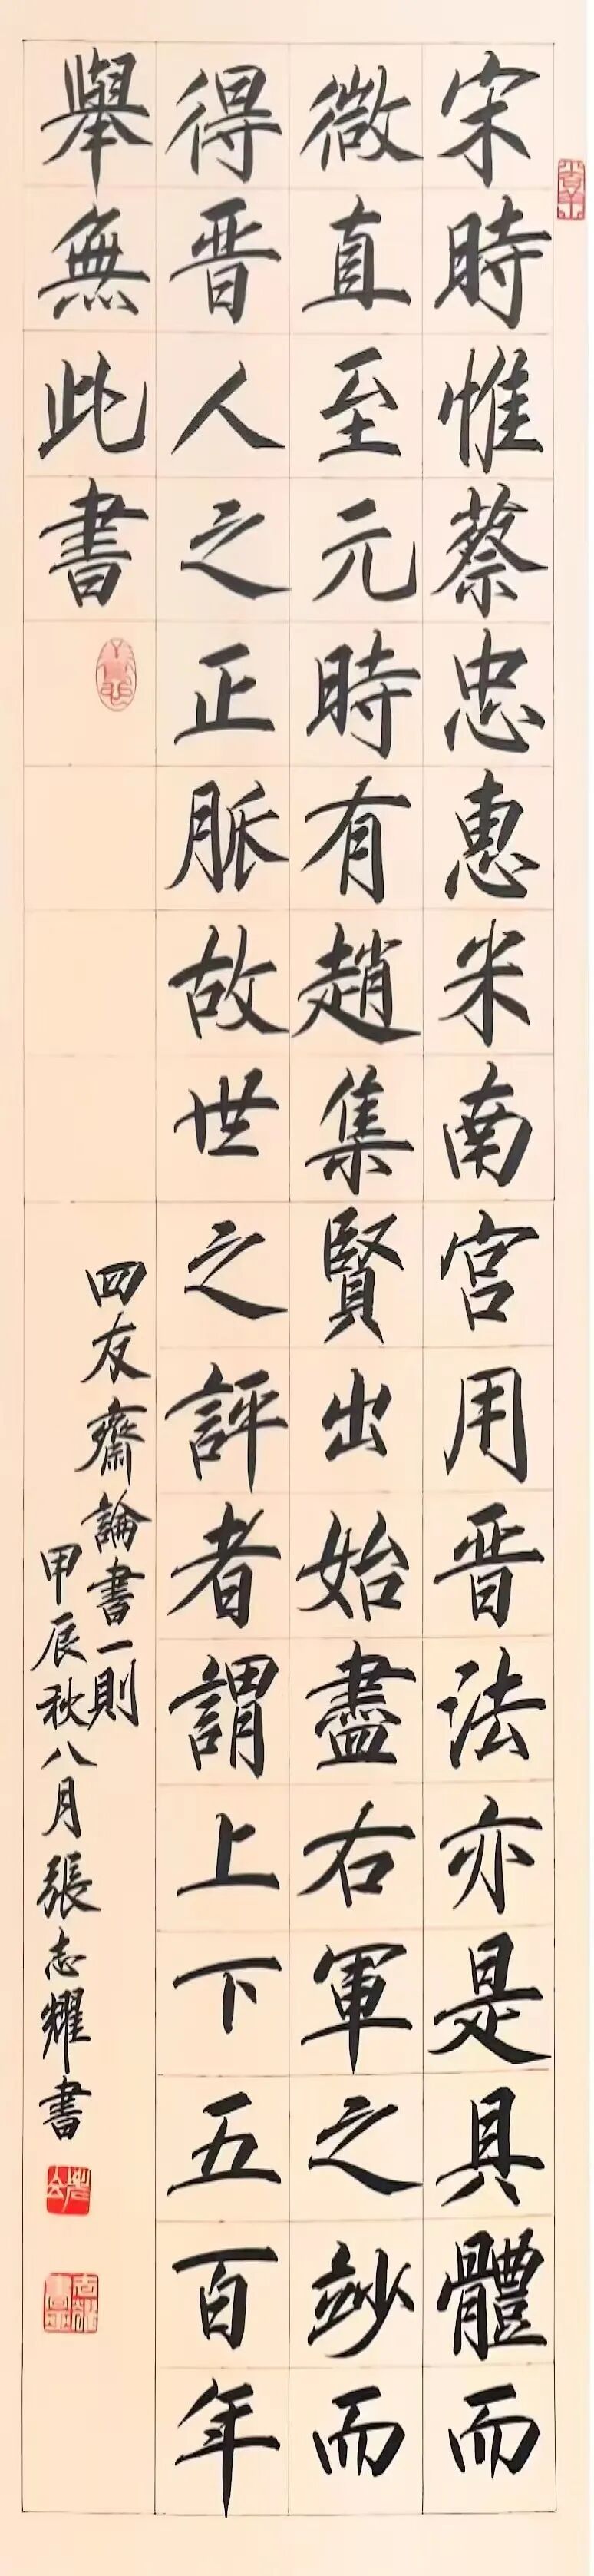 宋時惟蔡忠惠米南宮用晋法亦是具體而
微直至元時有趙集賢出始盡右軍之竗而
得晋人之正脈故世之評者謂上下五百年
舉無此書
四友齋論書一則
甲辰秋八月張志耀書